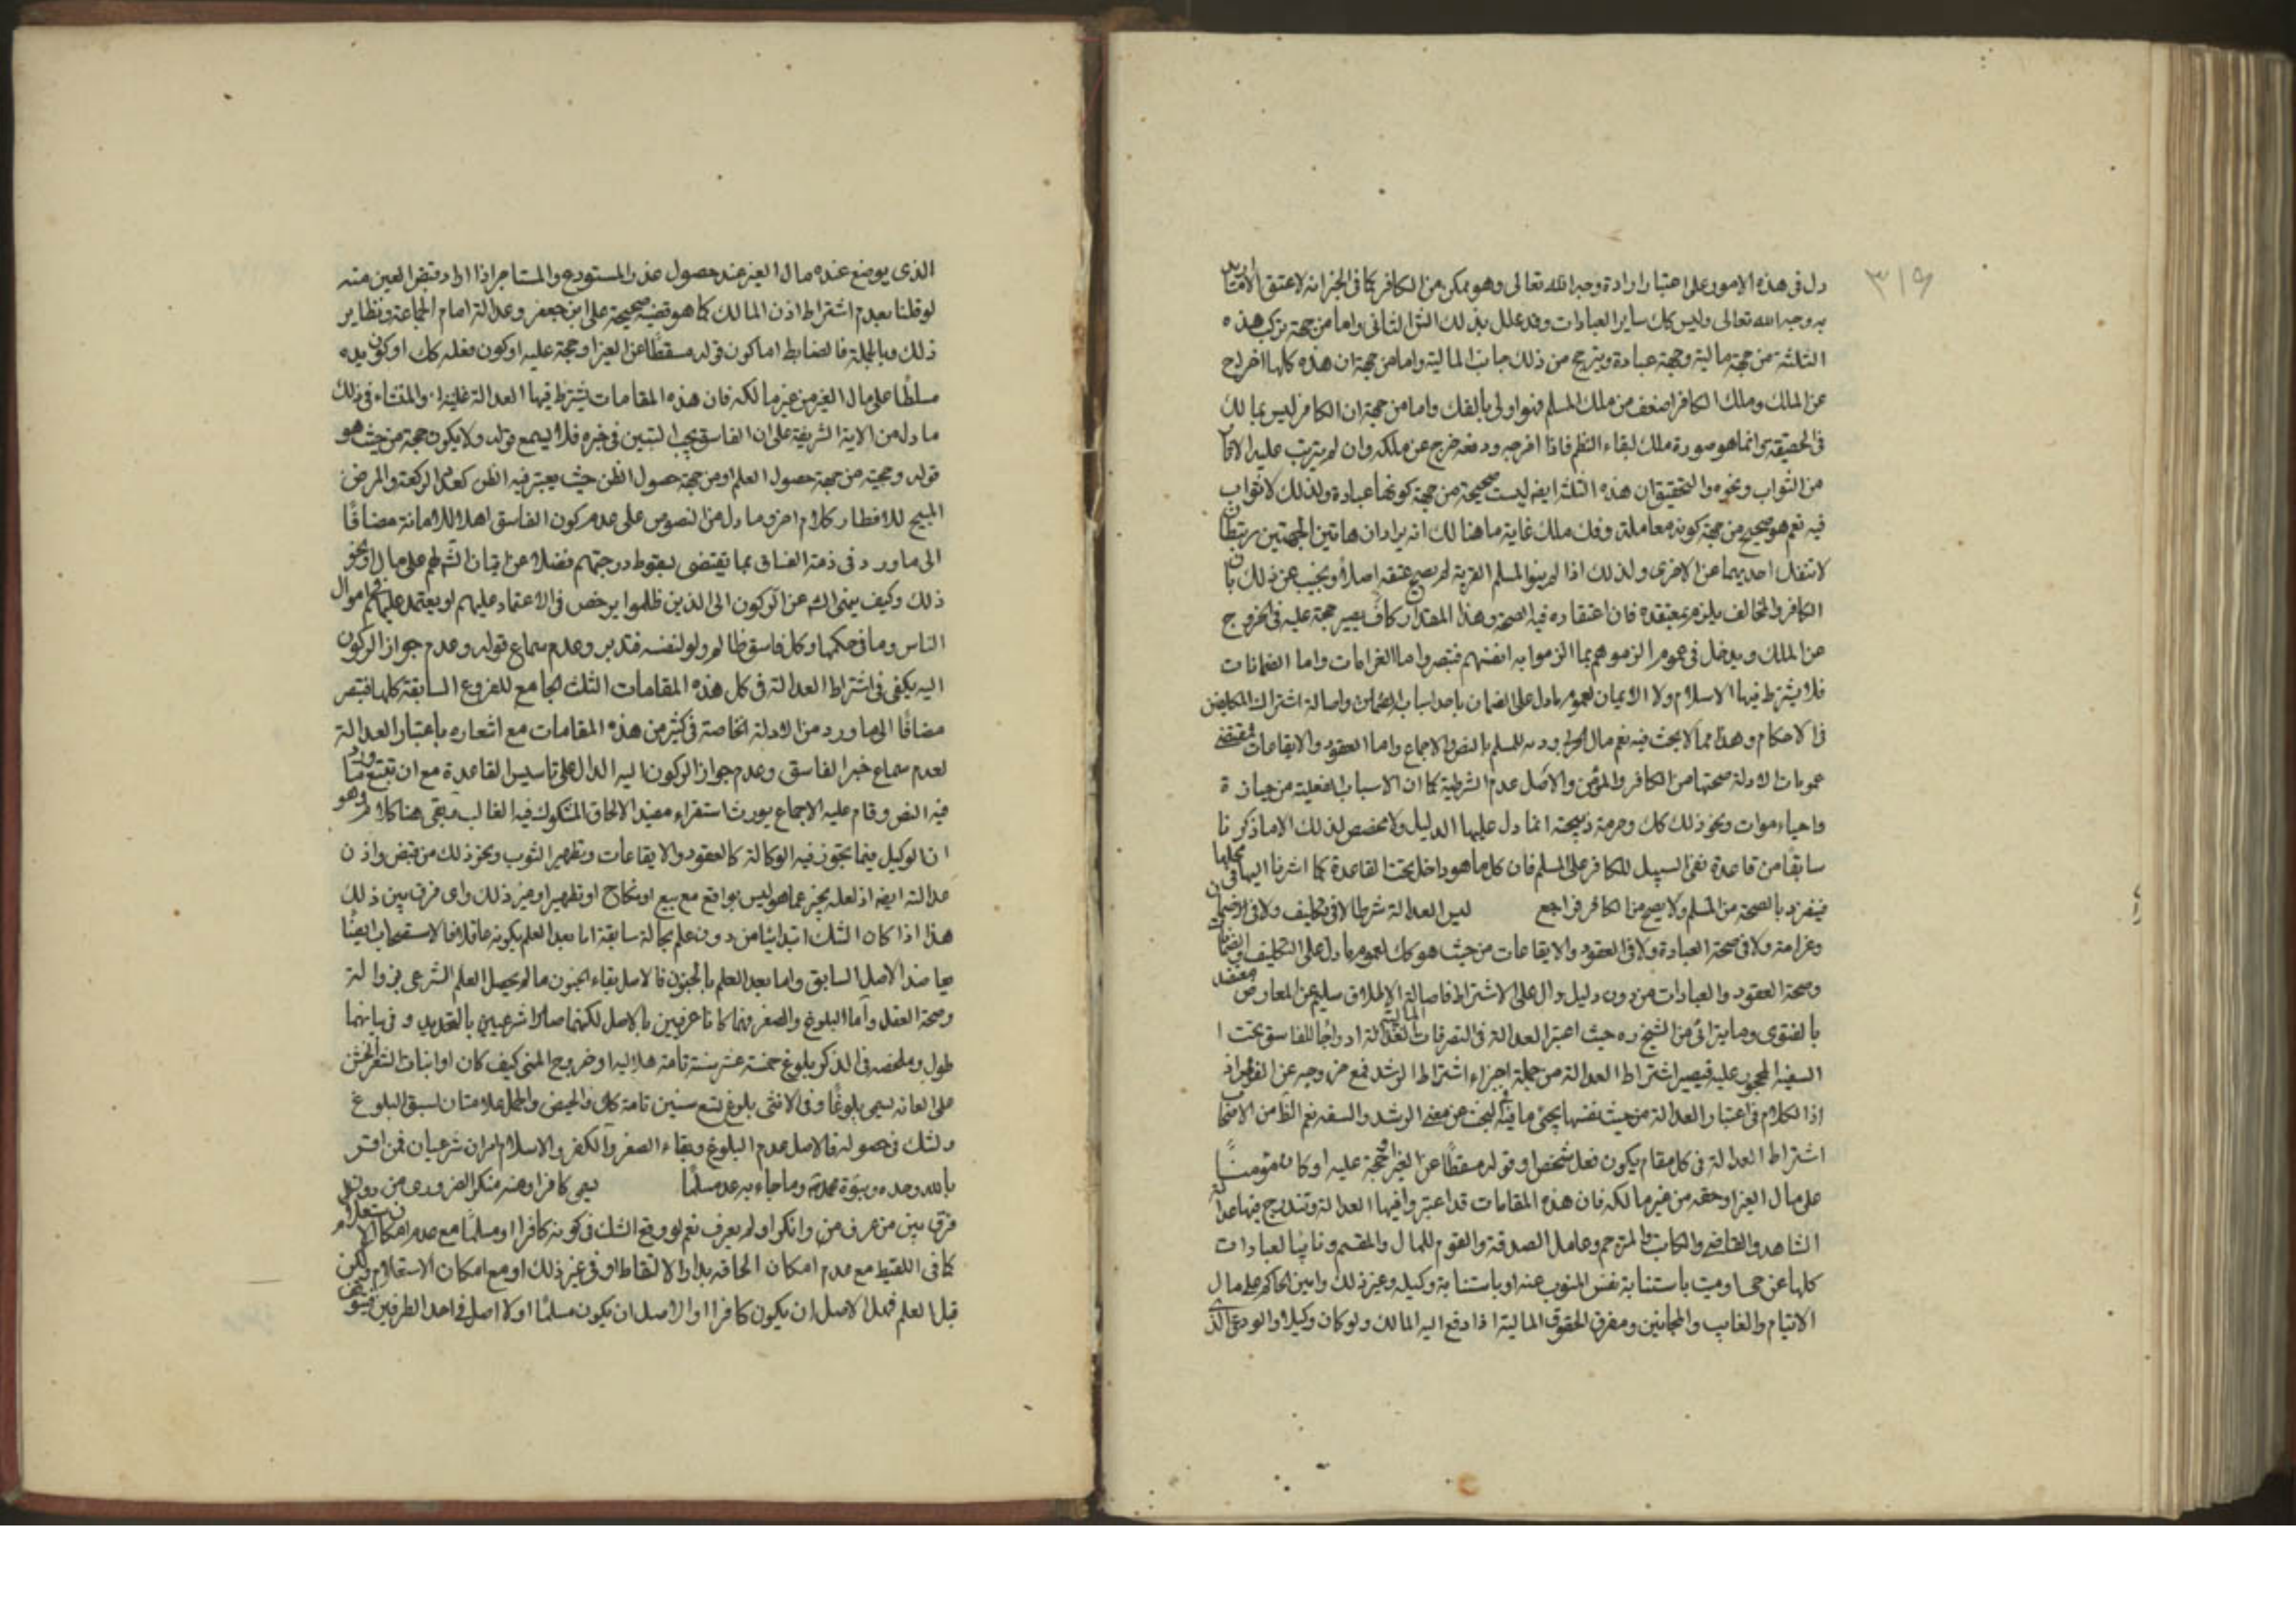 ٣١٩
دل فى هذه الامور على اعتبار ارادة وجه الله تعالى وهو ممكن من الكافر كما فى الخبر انه لا عتق الا ما اريد
به وجه الله تعالى وليس كك ساير العبادات وقد علل بذلك الشهيد الثانى واما من جهة تركب هذه
الثلثة من جهة مالية وجهة عبادة ويترجح من ذلك جانب المالية واما من جهة ان هذه كلها اخراج
عن الملك وملك الكافر اضعف من ملك المسلم فهو اولى بالفك واما من جهة ان الكافر ليس بمالك
فى الحقيقة وانما هو صورة ملك لبقاء النظم فاذا اخرجه ودفعه خرج عن ملكه وان لم يترتب عليه الاثار
من الثواب ونحوه والتحقيق ان هذه الثلثة ايضا ليست صحيحة من جهة كونها عبادة ولذلك لا ثواب
فيه نعم هو صحيح من جهة كونه معاملة وفك ملك غاية ما هنالك انه يراد ان هاتين الجهتين مرتبطتان
لا تنفك احديهما عن الاخرى ولذلك اذا لم ينو المسلم القربة لم يصح عتقه اصلا ونجيب عن ذلك بان
الكافر والمخالف يلزم بمعتقده فان اعتقاده فيه الصحة وهذا المقدار كاف يصير حجة عليه فى الخروج
عن الملك ويدخل فى عموم الزموهم بما الزموا به انفسهم فتبصر واما الغرامات واما الضمانات
فلا يشترط فيها الاسلام ولا الايمان لعموم ما دل على الضمان باحد اسباب الضمان واصالة اشتراك المكلفين
فى الاحكام وهذا مما لا بحث فيه نعم مال الحربى ودمه للمسلم بالنص والاجماع واما العقود والايقاعات فمقتضى
عمومات الادلة صحتها من الكافر والمؤمن والاصل عدم الشرطية كما ان الاسباب الفعلية من حيازة
واحياء موات ونحو ذلك كك وحرمة ذبيحته انما دل عليها الدليل ولا مخصص لذلك الا ما ذكرنا
سابقا من قاعدة نفى السبيل للكافر على المسلم فان كل ما هو داخل تحت القاعدة كما اشرنا اليها فى محلها
فينفرد بالصحة من المسلم ولا يصح من الكافر فراجع ليس العدالة شرطا لا فى تكليف ولا فى ضمان
وغرامة ولا فى صحة العبادة ولا فى العقود والايقاعات من حيث هو كك لعموم ما دل على التكليف والضمان
وصحة العقود والعبادات من دون دليل دال على الاشتراط فاصالة الاطلاق سليم عن المعارض معتضد
بالفتوى وما يتراءى من الشيخ ره حيث اعتبر العدالة فى التصرفات المالية ادراجا للفاسق تحت ا
السفيه المحجور عليه فيصير اشتراط العدالة من جملة اجزاء اشتراط الرشد فمع خروجه عن الفرض اذ
اذا الكلام فى اعتبار العدالة من حيث نفسها يجئ ما فيه فى البحث عن معنى الرشد والسفه نعم الظ من الاصحاب
اشتراط العدالة فى كل مقام يكون فعل شخص او قوله مسقطا عن الغير او حجة عليه او كان مؤتمنا
على مال الغير او حقه من غير مالكه فان هذه المقامات قد اعتبروا فيها العدالة وتندرج فيها عدالة
الشاهد والقاضى والكاتب والمترجم وعامل الصدقة والمقوم للمال والمقسم ونائب العبادات
كلها عن حى او ميت باستنابة نفس المنوب عنه او باستنابة وكيله وغير ذلك وامين الحاكم على مال
الايتام والغايب والمجانين ومفرق الحقوق المالية اذا دفع اليه المالك ولو كان وكيلا والودعى الذى
الذى يوضع عنده مال الغير عند حصول عذر المستودع والمستاجر اذا اراد قبض العين منه
لو قلنا بعدم اشتراط اذن المالك كما هو قضية صحيحة على ابن جعفر وعدالة امام الجماعة ونظاير
ذلك وبالجملة فالضابط اما كون قوله مسقطا عن الغير او حجة عليه او كون فعله كك او كون يده
مسلطا على مال الغير من غير مالكه فان هذه المقامات يشترط فيها العدالة غلبة والمنشاء فى ذلك
ما دل من الاية الشريفة على ان الفاسق يجب التبين فى خبره فلا يسمع قوله ولا يكون حجة من حيث هو
قوله وحجيته من جهة حصول العلم او من جهة حصول الظن حيث يعتبر فيه الظن كعدد الركعة والمرض
المبيح للافطار كلام اخر وما دل من النصوص على عدم كون الفاسق اهلا للامانة مضافا
الى ما ورد فى ذمة الفساق بما يقتضى سقوط درجتهم فضلا عن ايتمان الشم لهم على مال او نحو
ذلك وكيف ينهى الشم عن الركون الى الذين ظلموا يرخص فى الاعتماد عليهم او يعتمد عليهم فى اموال
الناس وما فى حكمها وكل فاسق ظالم ولو لنفسه فتدبر وعدم سماع قوله وعدم جواز الركون
اليه يكفى فى اشتراط العدالة فى كل هذه المقامات الثلث الجامع للفروع السابقة كلها فتبصر
مضافا الى ما ورد من الادلة الخاصة فى كثير من هذه المقامات مع اشعاره باعتبار العدالة
لعدم سماع خبر الفاسق وعدم جواز الركون اليه الدال على تاسيس القاعدة مع ان تتبع ما ورد
فيه النص وقام عليه الاجماع يورث استقراء مفيدا لالحاق المشكوك فيه الغالب فبقى هنا كلام وهو
ان الوكيل فيما يجوز فيه الوكالة كالعقود والايقاعات وتطهير الثوب ونحو ذلك من قبض واذن
عدالته ايضا اذ لعله يخبر عما هو ليس بواقع مع بيع او نكاح او تطهير او غير ذلك واى فرق بين ذلك
هذا اذا كان الشك ابتدائيا من دون علم بحالة سابقة اما بعد العلم بكونه عاقلا فالاستصحاب ايضا
يعاضد الاصل السابق واما بعد العلم بالجنون فالاصل بقاء الجنون ما لم يحصل العلم الشرعى بزواله
وصحة العقل واما البلوغ والصغر فهما كانا عرفيين بالاصل لكنهما صارا شرعيين بالتحديد وفى بيانهما
طول وملخصه فى الذكر بلوغ خمسة عشر سنة تامة هلالية او خروج المنى كيف كان او انبات الشعر الخشن
على العانة يسمى بلوغا وفى الانثى بلوغ تسع سنين تامة كك والحيض والحمل علامتان لسبق البلوغ
ولشك فى حصوله فالاصل عدم البلوغ وبقاء الصغر والكفر والاسلام امران شرعيان فمن اقر
بالله وحده ونبوة محمد وما جاء به عد مسلما يسمى كافرا ومنه منكر الضرورى من دون
فرق بين من عرف من وانكر او لم يعرف نعم لو وقع الشك فى كونه كافرا او مسلما مع عدم امكان الاستعلام
كما فى اللقيط مع عدم امكان الحاقه بدار الالتقاط او فى غير ذلك او مع امكان الاستعلام ولكن
قبل العلم فهل الاصل ان يكون كافرا او الاصل ان يكون مسلما او لا اصل فى احد الطرفين